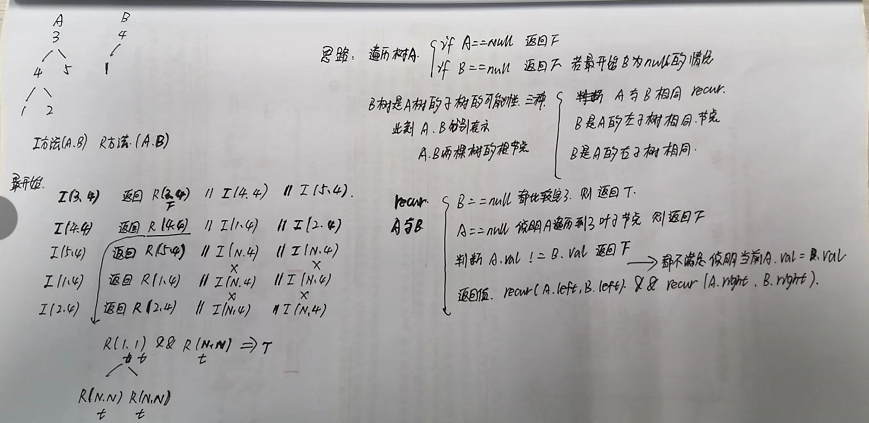 A
3
4 5
1 2
B
4
1
I方法(A.B) R方法.(A.B)
最开始.
I(3.4) 返回 R(3.4) // I(4.4) // I(5.4).
F
I(4.4) 返回 R(4.4) // I(1.4) // I(2.4)
I(5.4) 返回 R(5.4) // I(N.4) // I(N.4)
× ×
I(1.4) 返回 R(1.4) // I(N.4) // I(N.4)
× ×
I(2.4) 返回 R(2.4) // I(N.4) // I(N.4)
R(1.1) && R(N.N) => T
t t
R(N.N) R(N.N)
t t
思路: 遍历树A.
if A==null 返回F
if B==null 返回F 若最开始B为null的情况
B树是A树的子树的可能性. 三种.
此刻 A.B分别表示
A.B两棵树的根节点
判断 A与B相同 recur.
B是A的左子树相同.节点
B是A的右子树相同.
recur
A与B
B==null 都比较完了. 则返回T.
A==null 说明A遍历到了叶子节点 则返回F
判断 A.val != B.val 返回F
都不满足 说明当前A.val = B.val
返回值. recur(A.left, B.left) && recur(A.right, B.right).